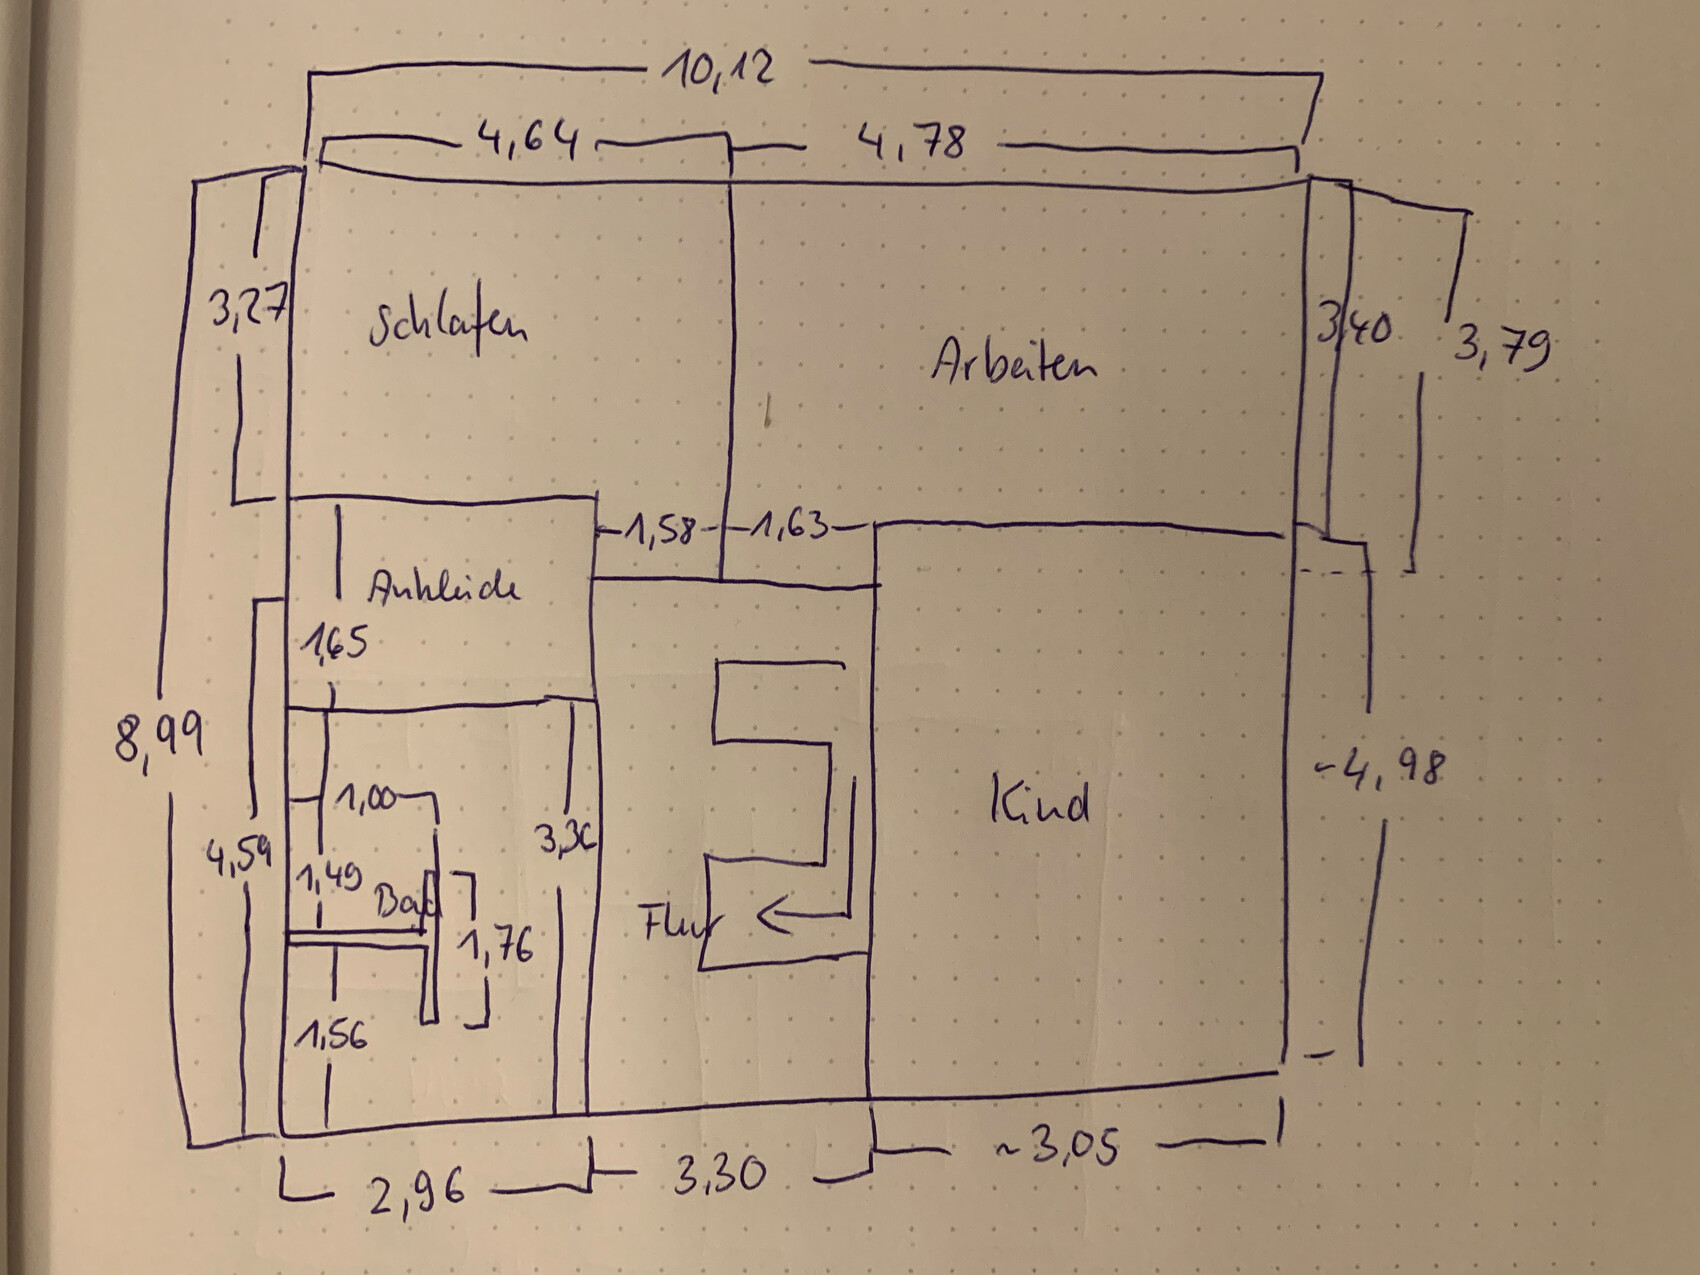 10,12
4,64
4,78
3,27
Schlafen
Arbeiten
3,40
3,79
1,58
1,63
Ankleide
1,65
8,99
1,00
4,59
1,49
Bad
3,30
1,76
1,56
Flur
Kind
~4,98
2,96
3,30
~3,05